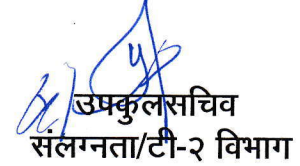 उपकुलसचिव
संलग्नता/टी-२ विभाग